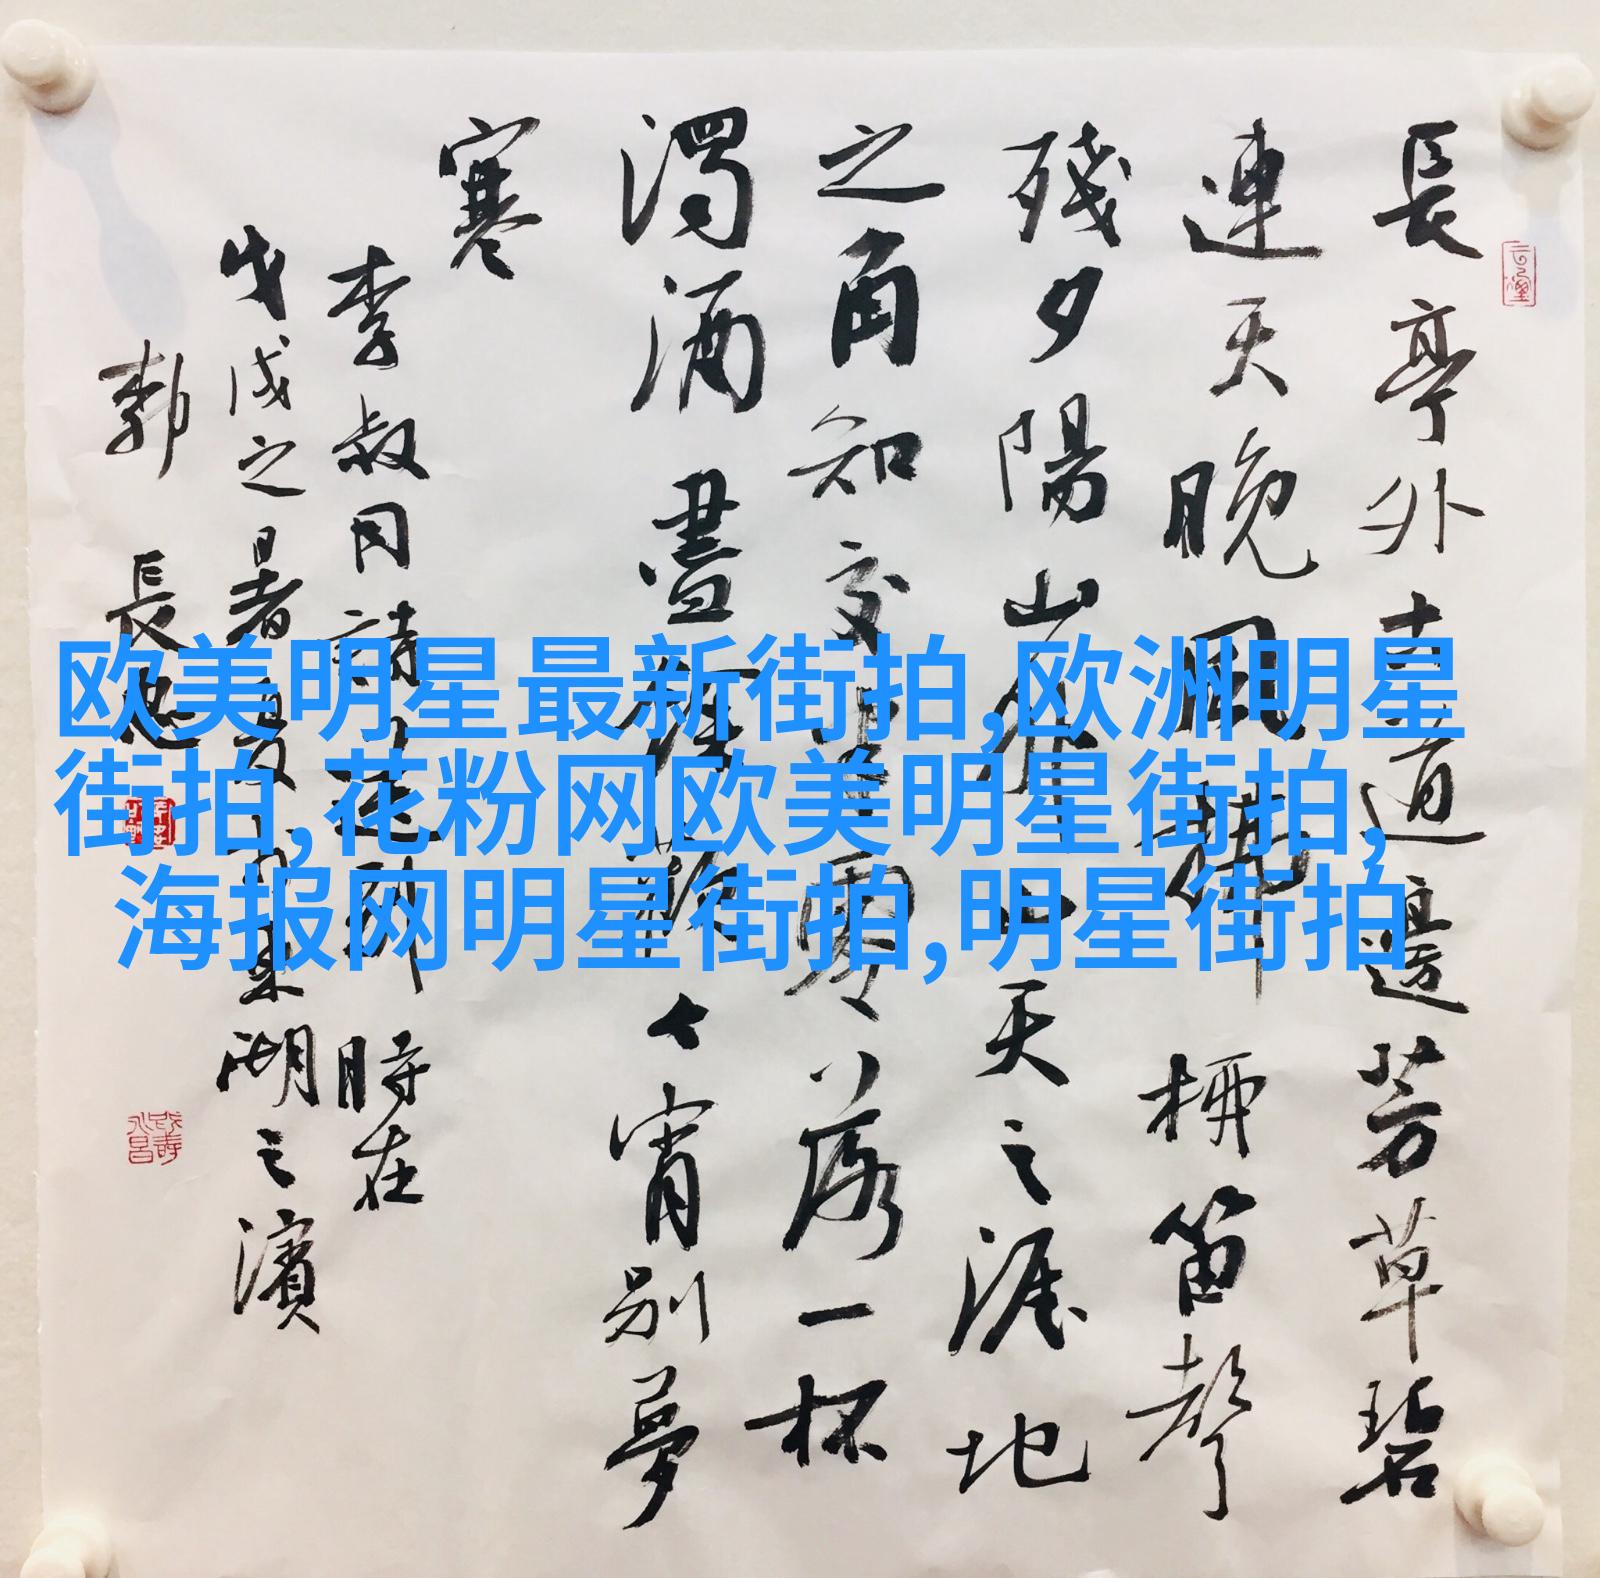 長亭外古道邊芳草碧
連天晚風拂柳笛聲
殘夕陽山外山天之涯地
之角知交半零落一杯
濁酒盡餘歡今宵別夢
寒
李叔同詩送別 時在
戊戌之暑夏東湖之濱
長
欧美明星最新街拍,欧洲明星
街拍,花粉网欧美明星街拍,
海报网明星街拍,明星街拍